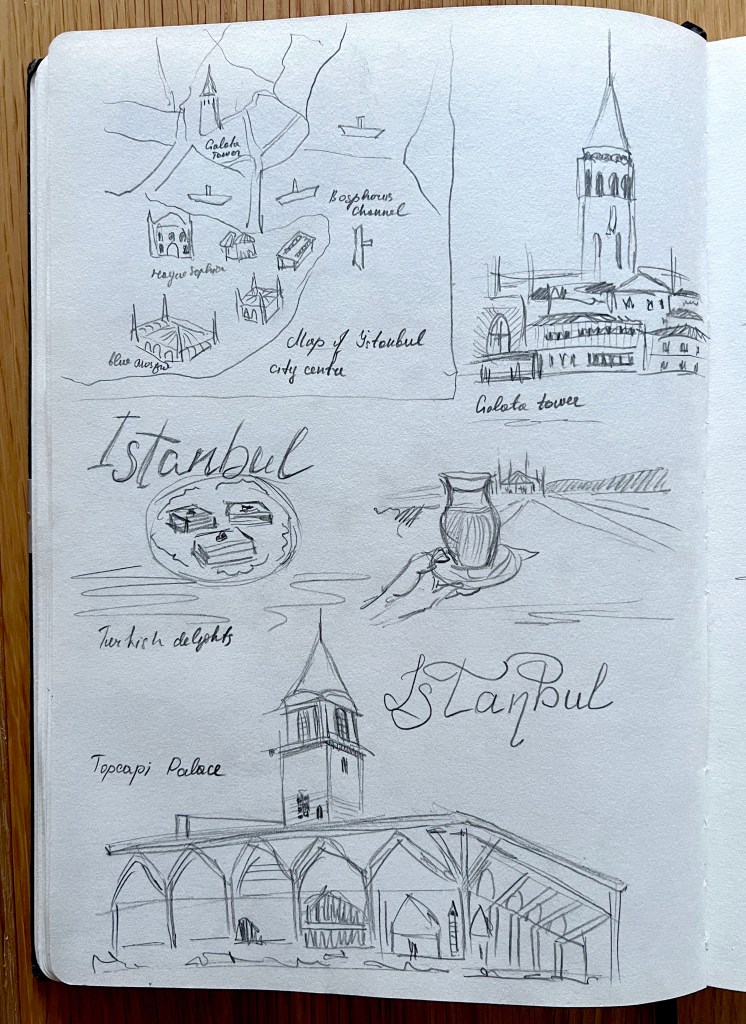 Galata
tower
Bosphorus
Channel
Sophia
Map of Istanbul
city centre
blue
Galata tower
Istanbul
Turkish delghts
IstanBul
Topcapi Palace